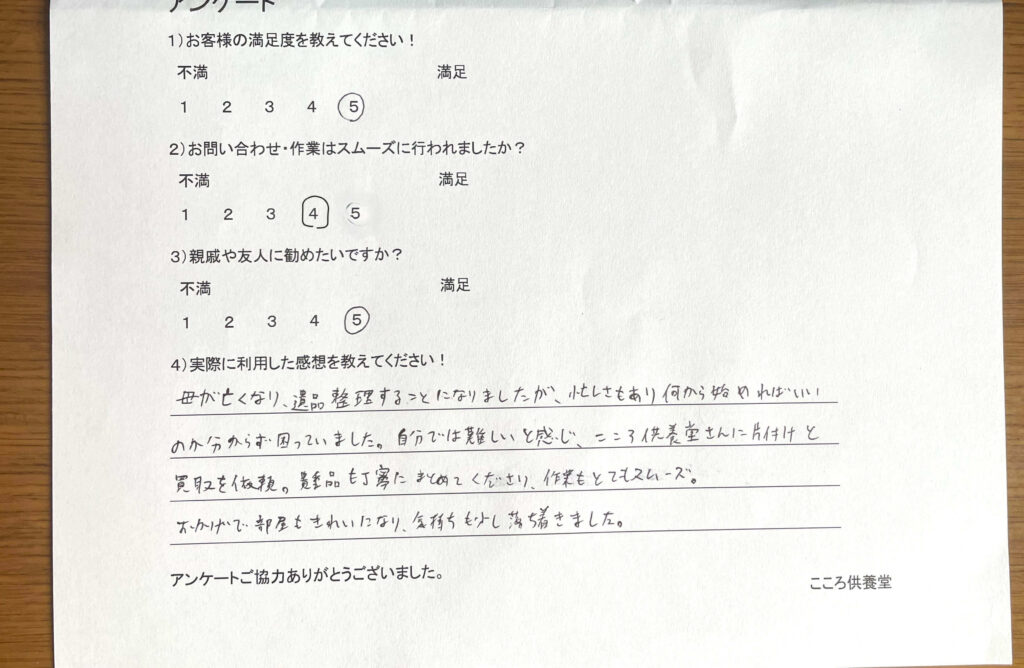 アンケート
1)お客様の満足度を教えてください!
不満 満足
1 2 3 4 5
2)お問い合わせ・作業はスムーズに行われましたか?
不満 満足
1 2 3 4 5
3)親戚や友人に勧めたいですか?
不満 満足
1 2 3 4 5
4)実際に利用した感想を教えてください!
母が亡くなり、遺品整理することになりましたが、忙しさもあり何から始めればいい
のか分からず困っていました。自分では難しいと感じ、こころ供養堂さんに片付けと
買取を依頼。遺品も丁寧にまとめてくださり、作業もとてもスムーズ。
おかげで部屋もきれいになり、気持ちも少し落ち着きました。
アンケートご協力ありがとうございました。
こころ供養堂